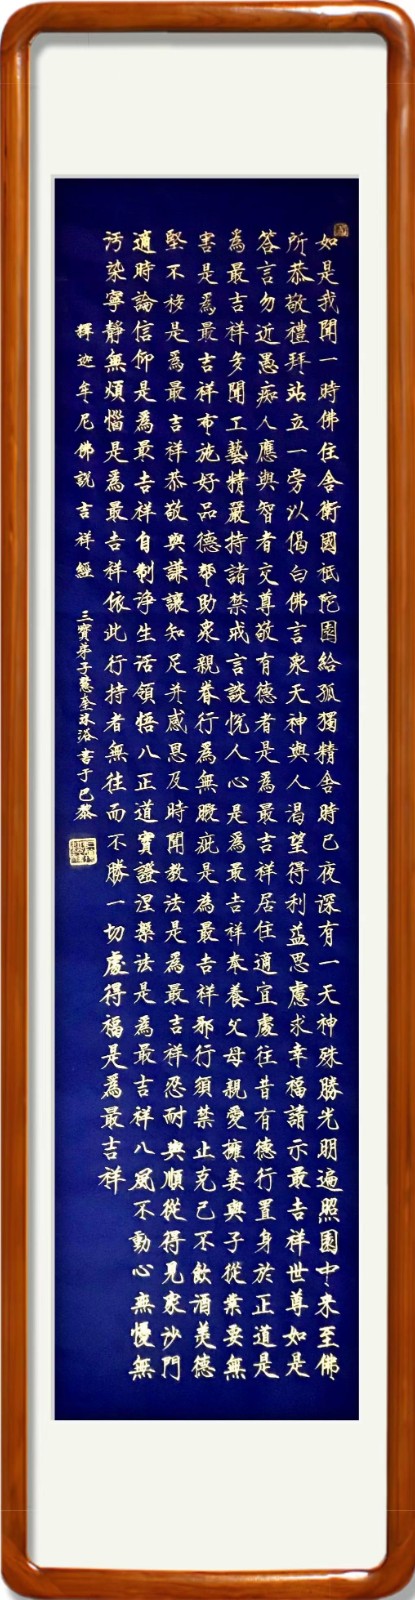 如是我聞一時佛住舍衛國祗陀園給孤獨精舍時已夜深有一天神殊勝光明遍照園中来至佛
所恭敬禮拜站立一旁以偈白佛言眾天神與人渴望得利益思慮求幸福請示最吉祥世尊如是
答言勿近愚痴人應與智者交尊敬有德者是為最吉祥居住適宜處往昔有德行置身於正道是
為最吉祥多聞工藝精嚴持諸禁戒言談悅人心是為最吉祥奉養父母親愛擁妻與子從業要無
害是為最吉祥布施好品德幫助眾親眷行為無瑕疵是為最吉祥邪行須禁止克己不飲酒美德
堅不移是為最吉祥恭敬與謙讓知足并感恩及時聞教法是為最吉祥忍耐與順從得見眾沙門
適時論信仰是為最吉祥自制淨生活領悟八正道實證涅槃法是為最吉祥八風不動心無憂無
污染寧靜無煩惱是為最吉祥依此行持者無往而不勝一切處得福是為最吉祥
釋迦牟尼佛説吉祥經
三寶弟子慧
書于己